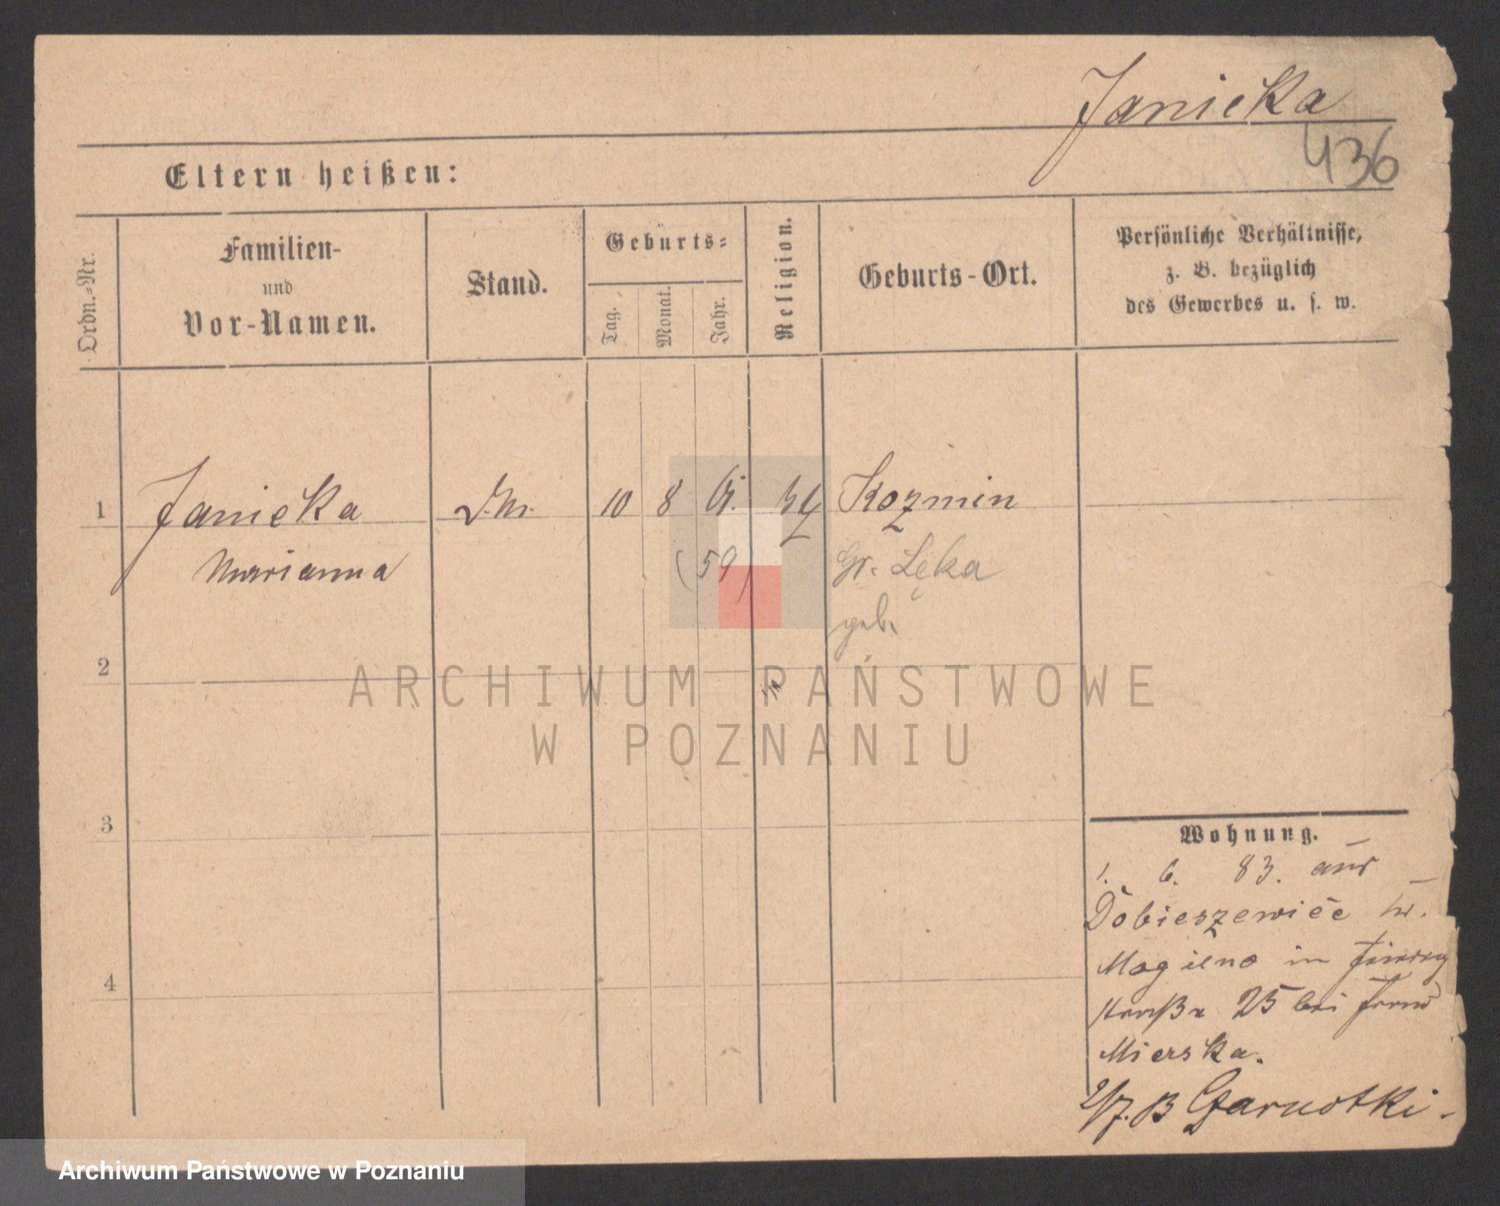 Janicka
436
Eltern heißen:
Ordn.-Nr.
Familien-
und
Vor-Namen.
Stand.
Geburts-
Tag.
Monat.
Jahr.
Religion.
Geburts-Ort.
Persönliche Verhältnisse,
z. B. bezüglich
des Gewerbes u. s. w.
1
Janicka
10
8
Kozmin
Marianna
(59)
Gr. Lęka
geb.
2
ARCHIWUM PAŃSTWOWE
W POZNANIU
3
Wohnung.
1. 6. 83. aus
Dobieszewice
Mogilno in
4
straße 25 bei Frau
Mierska.
Garnotki.
Archiwum Państwowe w Poznaniu